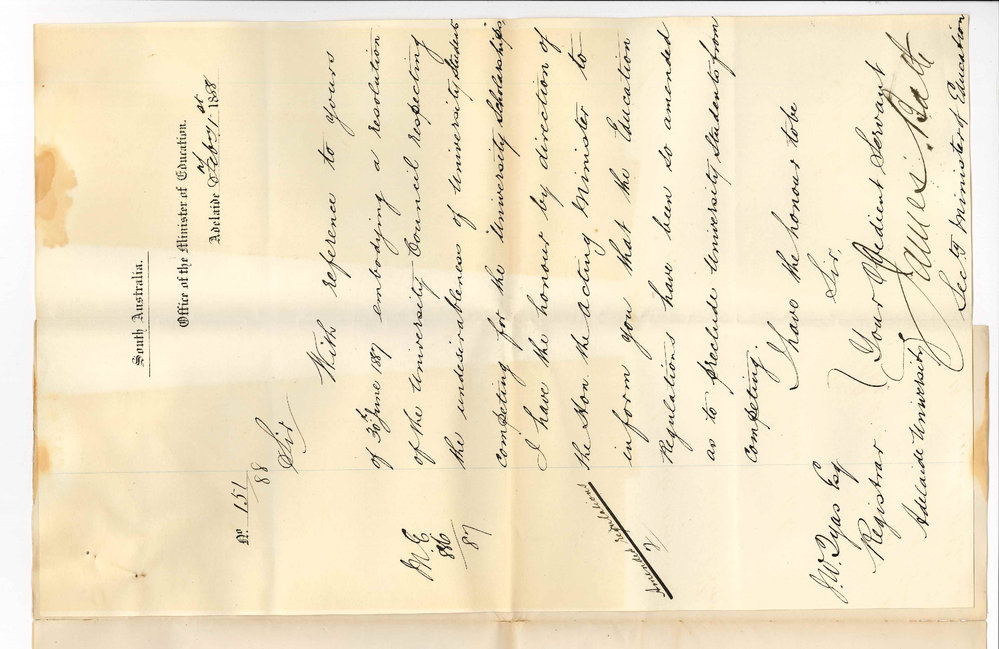 South Australia.
Office of the Minister of Education.
Adelaide 188
No. 151/88
Sir
With reference to yours
of 30th June 1887 embodying a resolution
of the University Council respecting
M.E. 886/87
the undesirableness of University students
competing for the University Scholarships
I have the honour by direction of
the Hon the acting Minister to
inform you that the Education
Regulations have been so amended
as to preclude University Students from
competing.
Amended regulations
I have the honour to be
Sir,
Your Obedient Servant
Secty Minister of Education
J.W. Tyas Esq
Registrar
Adelaide University